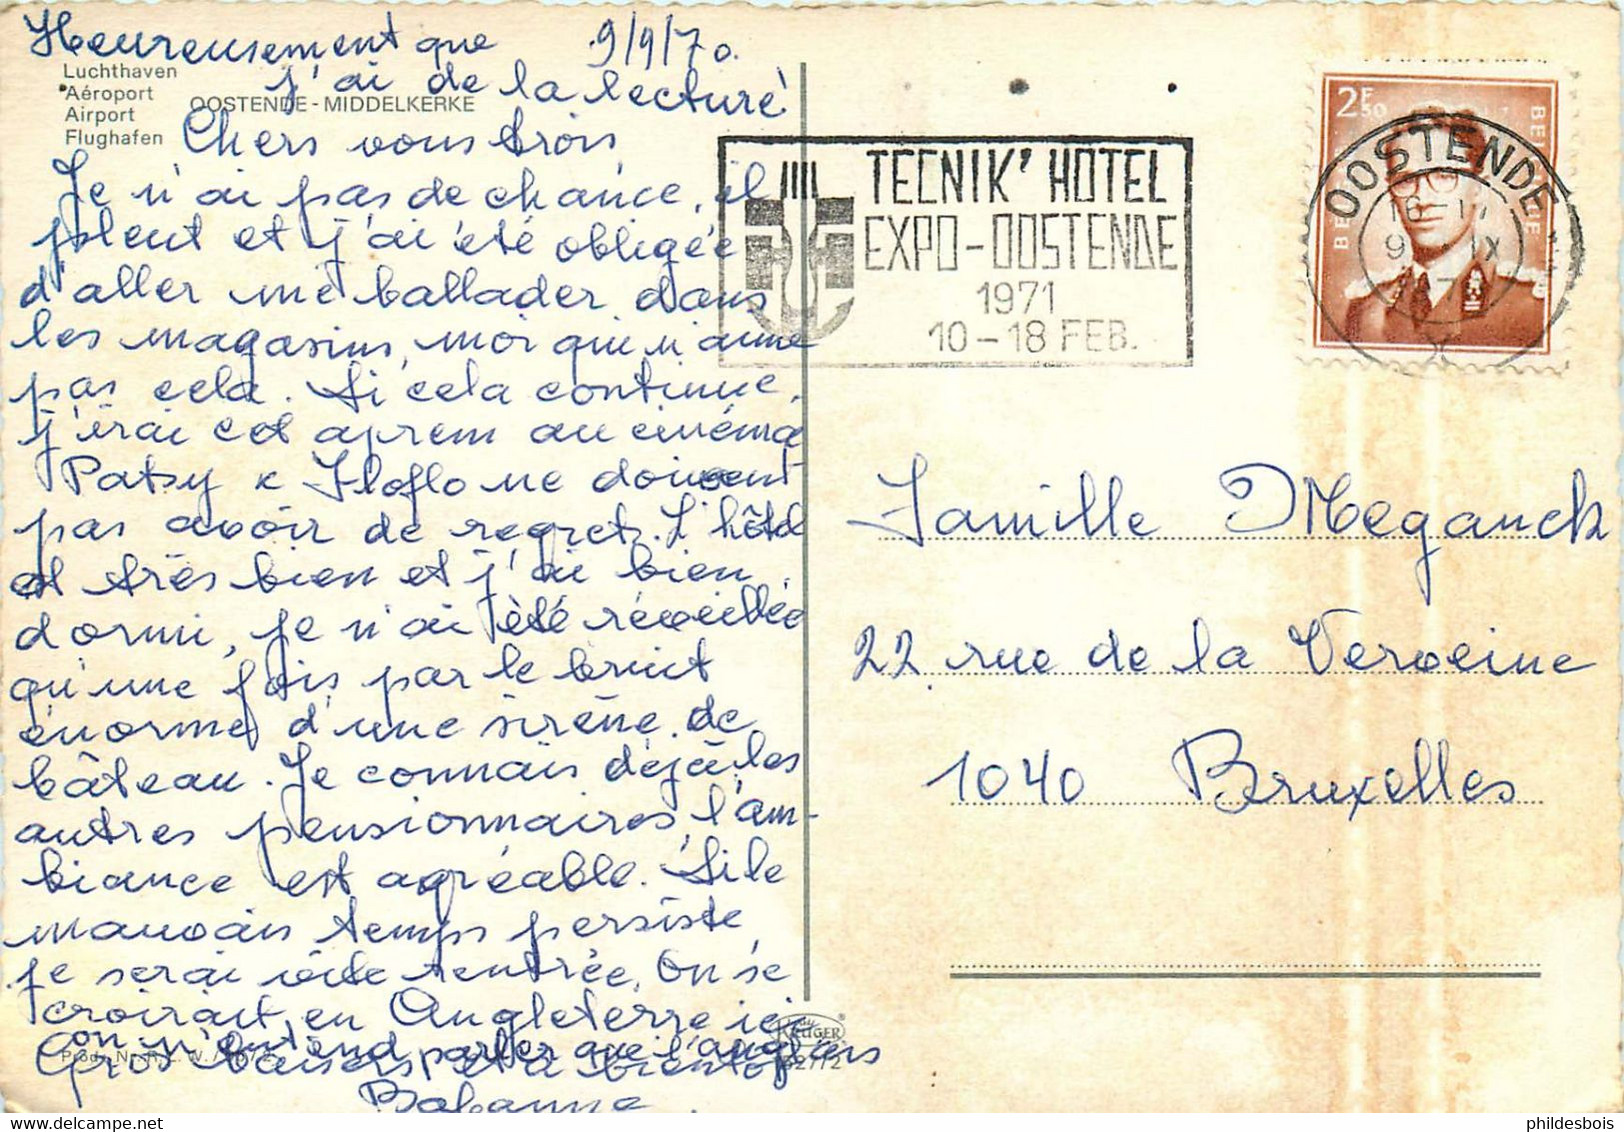 Heureusement que 9/9/70.
j'ai de la lecture!
Luchthaven
Aéroport
Airport
Flughafen
OOSTENDE - MIDDELKERKE
Chers vous trois,
Je n'ai pas de chance, il
pleut et j'ai été obligée
d'aller me ballader dans
les magasins, moi qui n'aime
pas cela. Si cela continue,
j'irai cet aprem au cinéma
Patsy & Floflo ne doivent
pas avoir de regret. L'hôtel
est très bien et j'ai bien
dormi, je n'ai été réveillée
qu'une fois par le bruit
énorme d'une sirène de
bâteau. Je connais déjà les
autres pensionnaires, l'am-
biance est agréable. Si le
mauvais temps persiste,
je serai vite rentrée. On se
croirait en Angleterre ici
on n'entend parler que l'anglais
Gros baisers et à bientôt
TECNIK' HOTEL
EXPO-OOSTENDE
1971
10-18 FEB.
2F50
BELGIQUE
OOSTENDE
Famille Meganck
22, rue de la Verveine
1040 Bruxelles
KRÜGER
phildesbois